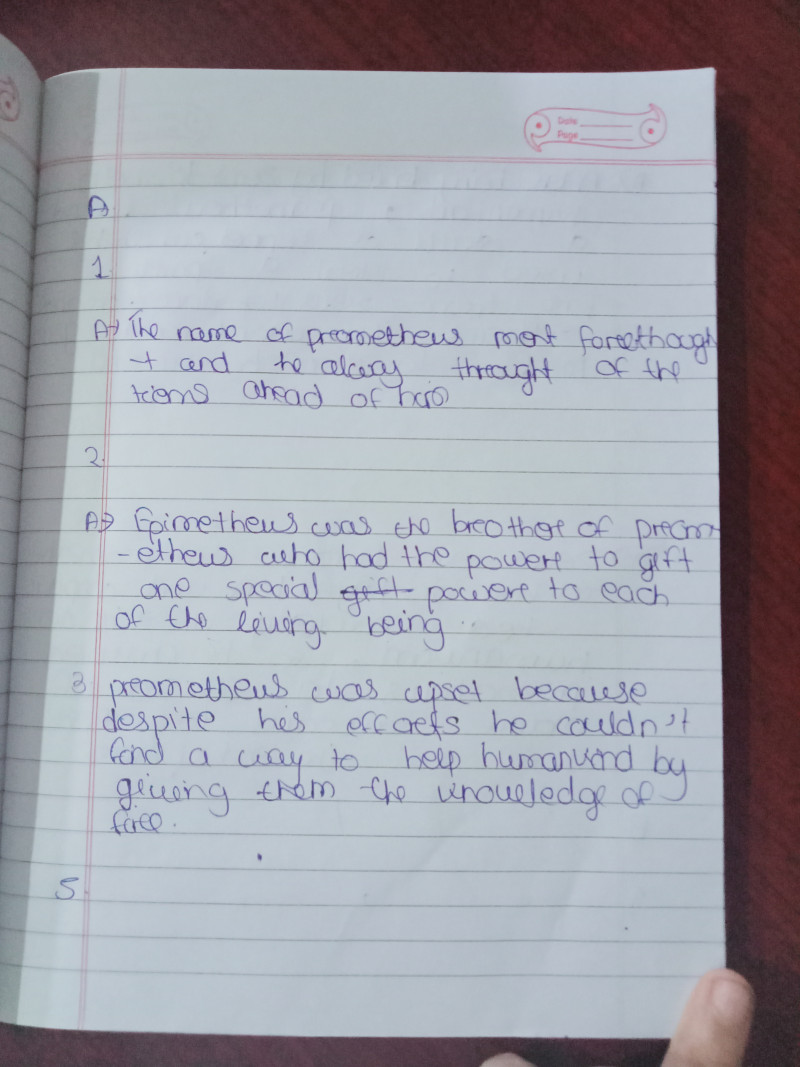 Date
Page
A
1
A→ The name of preometheus ment foreethough
t and he alway throught of the
tiems ahead of his
2.
A→ Epimetheus was the breother of preom
-etheus who had the powere to gift
one special gift powere to each
of the living being
3 preometheus was upset because
despite his efforts he couldn't
find a way to help humankind by
giveing them the knowledge of
fire.
5.